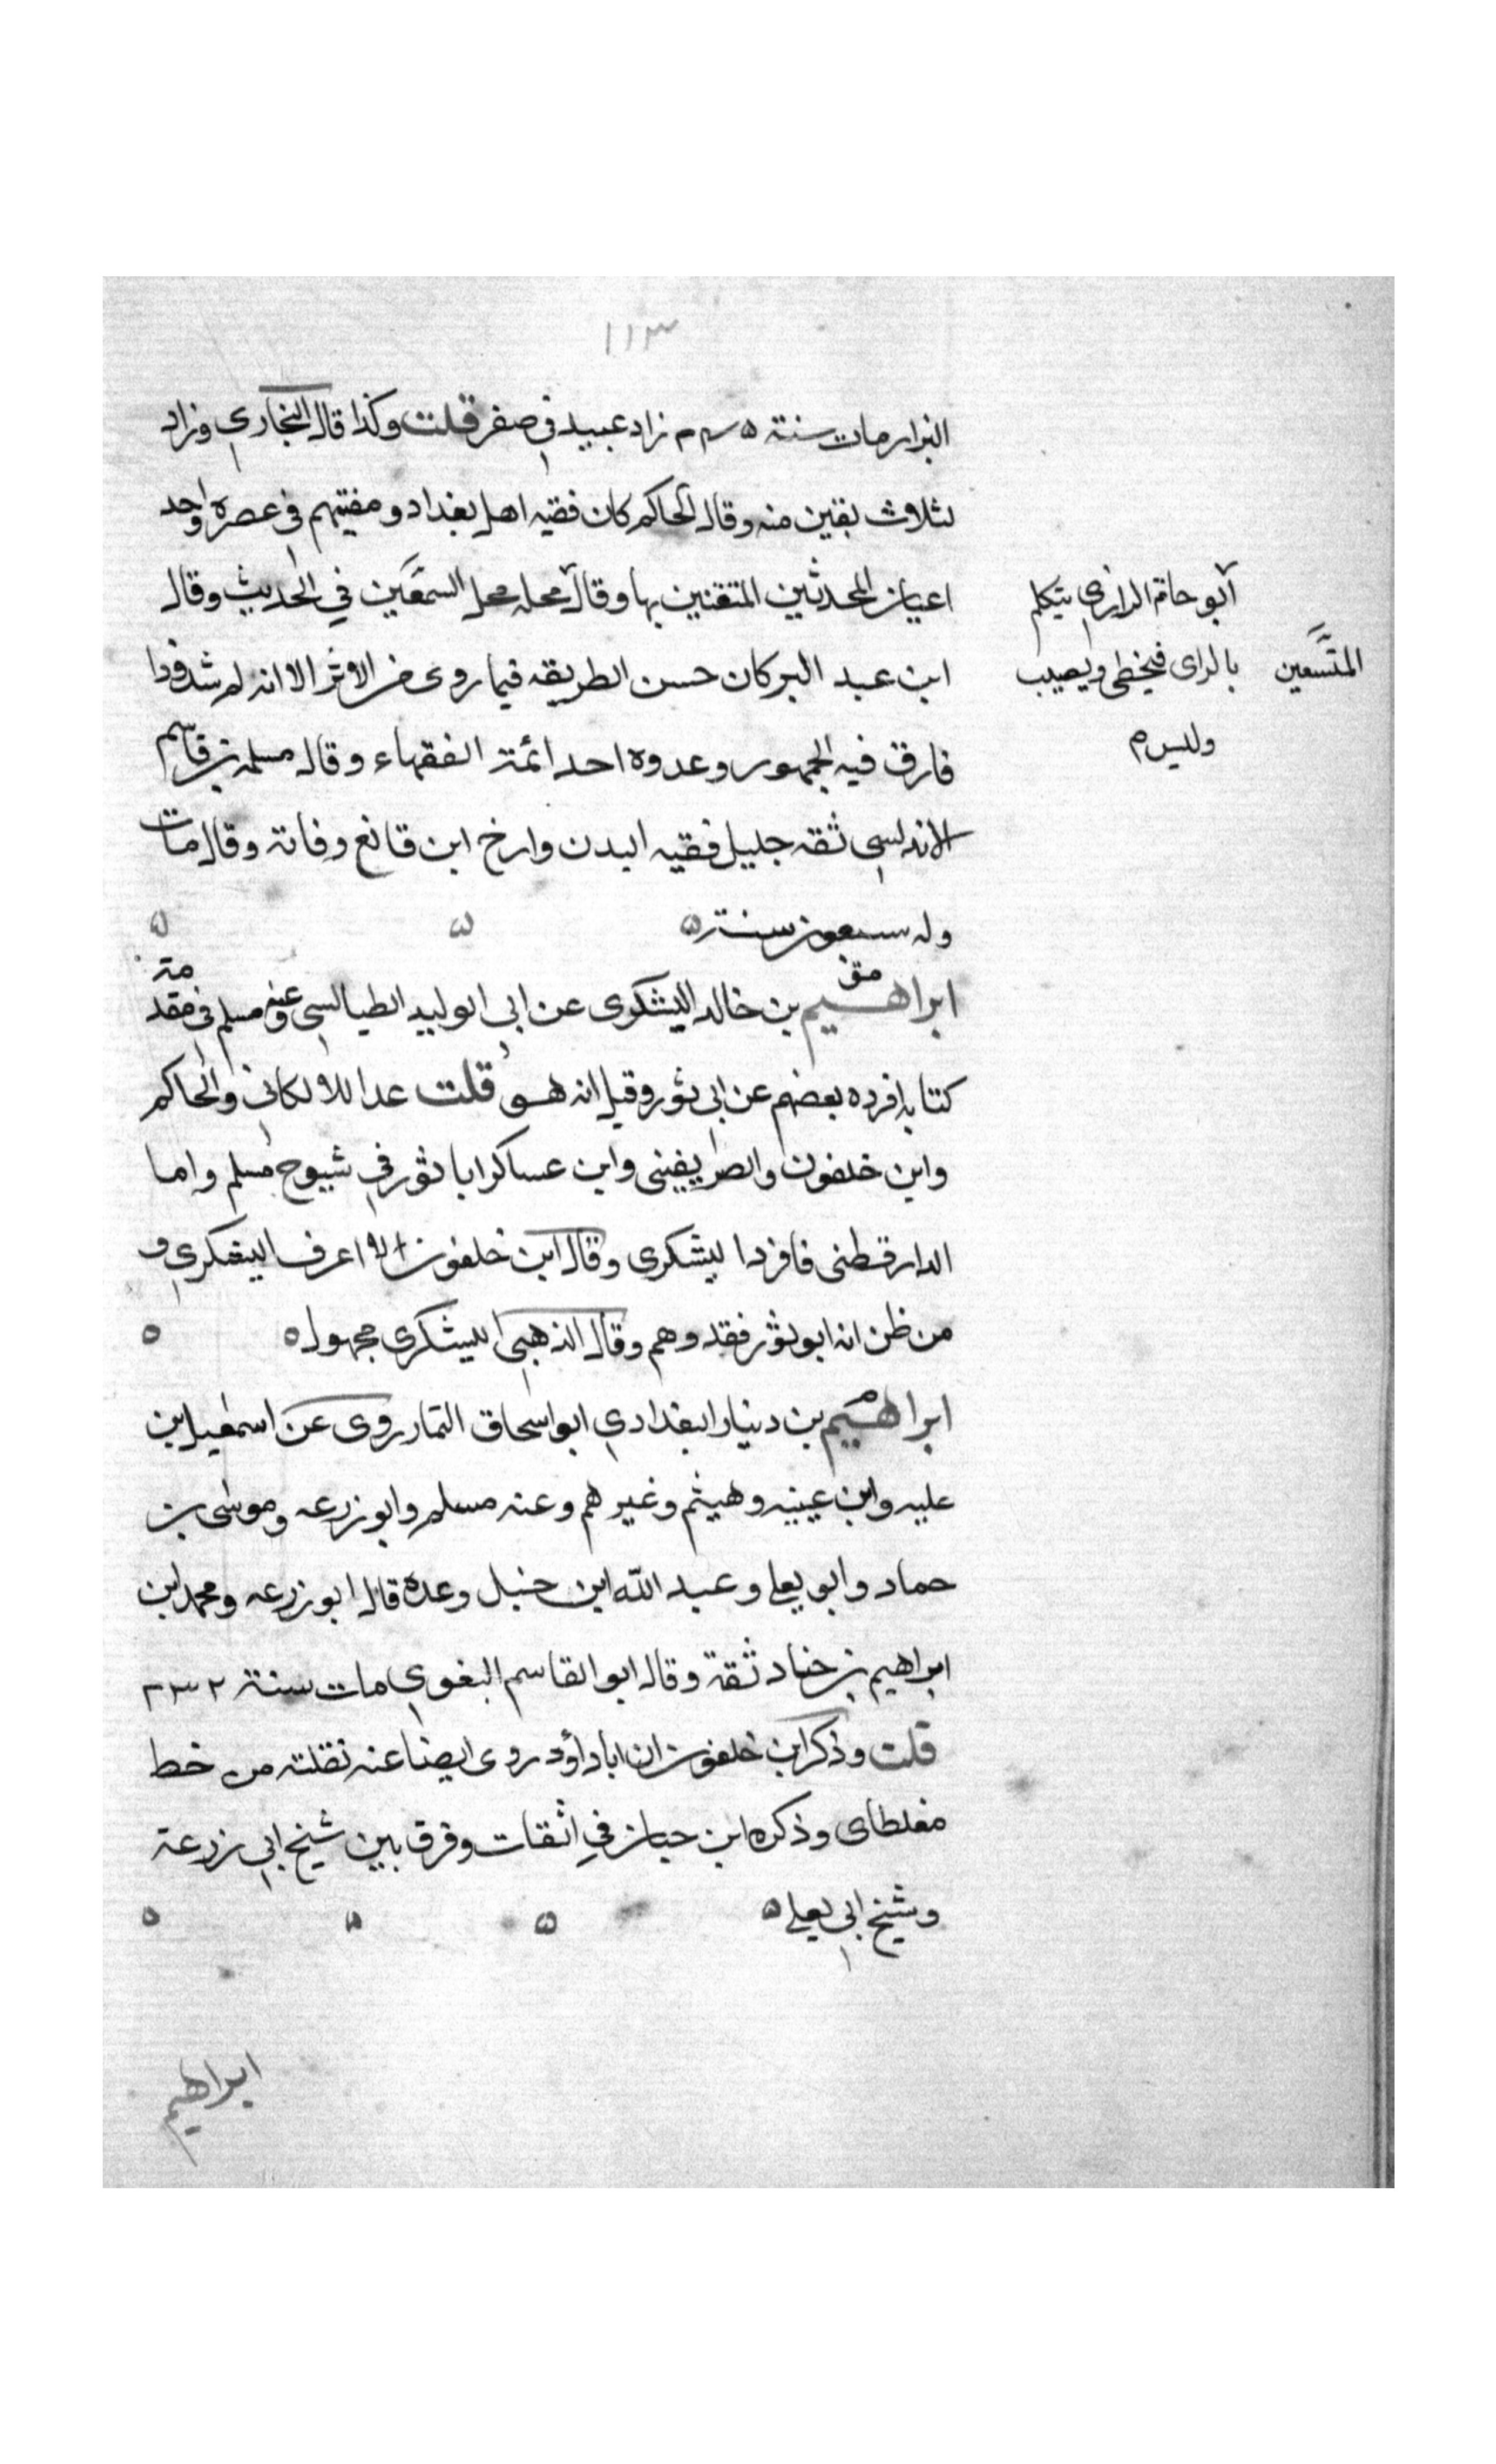 ١١٣
البزار مات سنة ٢٤٥ زاد عبيد في صفر قلت وكذا قال البخاري وزاد
لثلاث بقين منه وقال الحاكم كان فقيه اهل بغداد ومفتيهم في عصره واحد
اعيان المحدثين المتقنين بها وقال محله محل السمعين في الحديث وقال
ابو حاتم الرازي يتكلم
بالراى فيخطى ويصيب
وليس م
المتسعين
ابن عبد البر كان حسن الطريقه فيما روى من الاثر الا انه له شذوذا
فارق فيه الجمهور وعدوه احد ائمة الفقهاء وقال مسلمه بن قاسم
الاندلسي ثقه جليل فقيه البدن وارخ ابن قانع وفاته وقال مات
وله سبعون سنة ٥ ٥ ٥
ابراهيم بن خالد اليشكرى عن ابي الوليد الطيالسي وعنه مسلم في مقدمة
مق
كتابه افرده بعضهم عن ابي ثور وقيل انه هو قلت عد اللالكائى والحاكم
وابن خلفون والصريفينى وابن عساكر ابا ثور في شيوخ مسلم واما
الدارقطنى فافرد اليشكرى وقال ابن خلفون لا اعرف اليشكري و
من ظن انه ابو ثور فقد وهم وقال الذهبي اليشكرى مجهول ٥ ٥
ابراهيم بن دينار البغدادي ابو اسحاق التمار روى عن اسمعيل ابن
م
عليه وابن عيينه وهيثم وغيرهم وعنه مسلم وابو زرعه وموسى بن
حماد وابو يعلى وعبد الله ابن حنبل وعده قال ابو زرعه ومحمد ابن
ابراهيم بن جناد ثقة وقال ابو القاسم البغوي مات سنة ٢٣٢
قلت وذكر ابن خلفون ان ابا داؤد روى ايضا عنه نقلته من خط
مغلطاى وذكره ابن حبان في الثقات وفرق بين شيخ ابي زرعة
وشيخ ابي يعلى ٥ ٥ ٥ ٥
ابراهيم